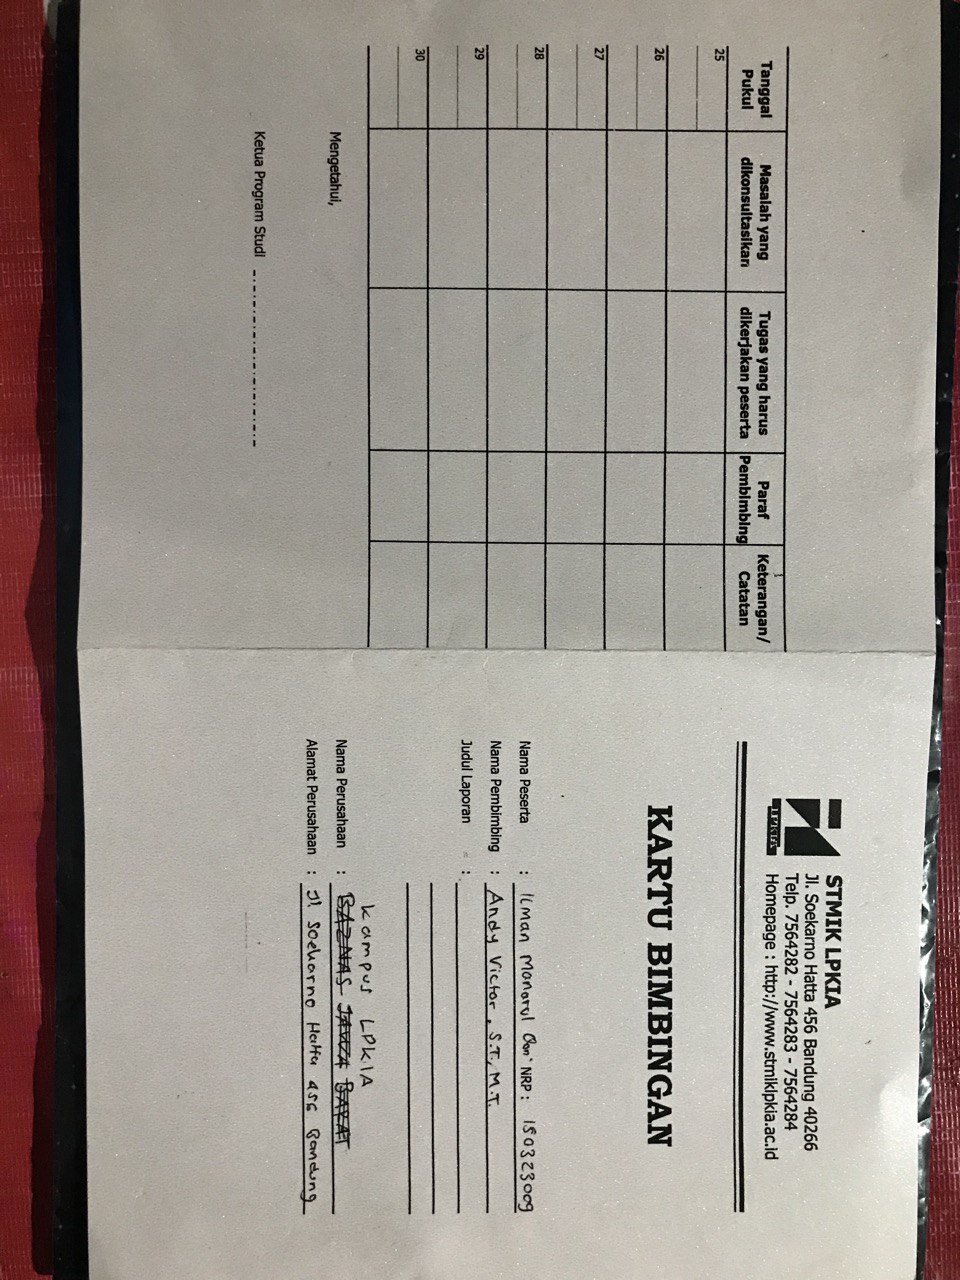 Tanggal
Pukul
Masalah yang
dikonsultasikan
Tugas yang harus
dikerjakan peserta
Paraf
Pembimbing
Keterangan/
Catatan
25
26
27
28
29
30
Mengetahui,
Ketua Program Studi
LPKIA
STMIK LPKIA
Jl. Soekarno Hatta 456 Bandung 40266
Telp. 7564282 - 7564283 - 7564284
Homepage : http://www.stmiklpkia.ac.id
KARTU BIMBINGAN
Nama Peserta : Ilman Manarul NRP : 150323009
Nama Pembimbing : Andy Victor, S.T., M.T.
Judul Laporan :
Kampus LPKIA
Nama Perusahaan : BAZNAS JAWA BARAT
Alamat Perusahaan : Jl. Soekarno Hatta 456 Bandung